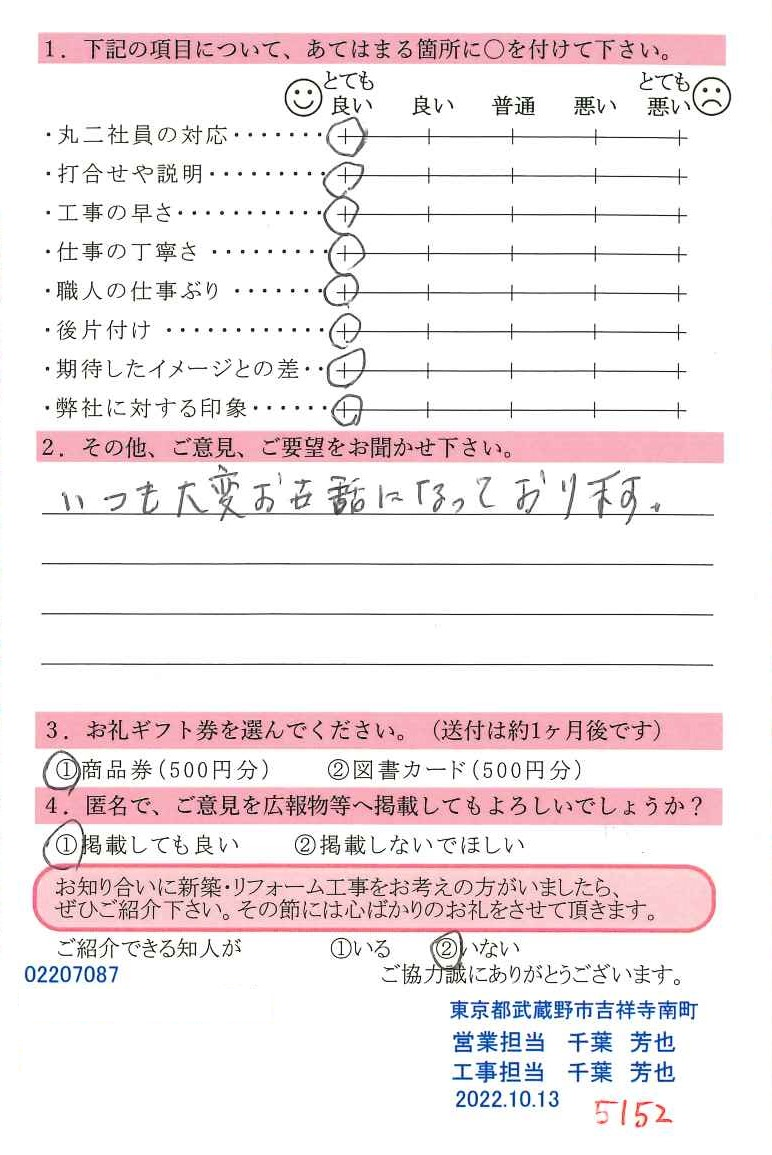 1．下記の項目について、あてはまる箇所に○を付けて下さい。
とても良い 良い 普通 悪い とても悪い
・丸二社員の対応・・・・・・・
・打合せや説明・・・・・・・・・
・工事の早さ・・・・・・・・・・・
・仕事の丁寧さ・・・・・・・・・
・職人の仕事ぶり・・・・・・・
・後片付け・・・・・・・・・・・・
・期待したイメージとの差・・
・弊社に対する印象・・・・・・
2．その他、ご意見、ご要望をお聞かせ下さい。
いつも大変お世話になっております。
3．お礼ギフト券を選んでください。（送付は約1ヶ月後です）
①商品券(500円分) ②図書カード(500円分)
4．匿名で、ご意見を広報物等へ掲載してもよろしいでしょうか？
①掲載しても良い ②掲載しないでほしい
お知り合いに新築・リフォーム工事をお考えの方がいましたら、
ぜひご紹介下さい。その節には心ばかりのお礼をさせて頂きます。
ご紹介できる知人が ①いる ②いない
02207087 ご協力誠にありがとうございます。
東京都武蔵野市吉祥寺南町
営業担当 千葉 芳也
工事担当 千葉 芳也
2022.10.13 5152